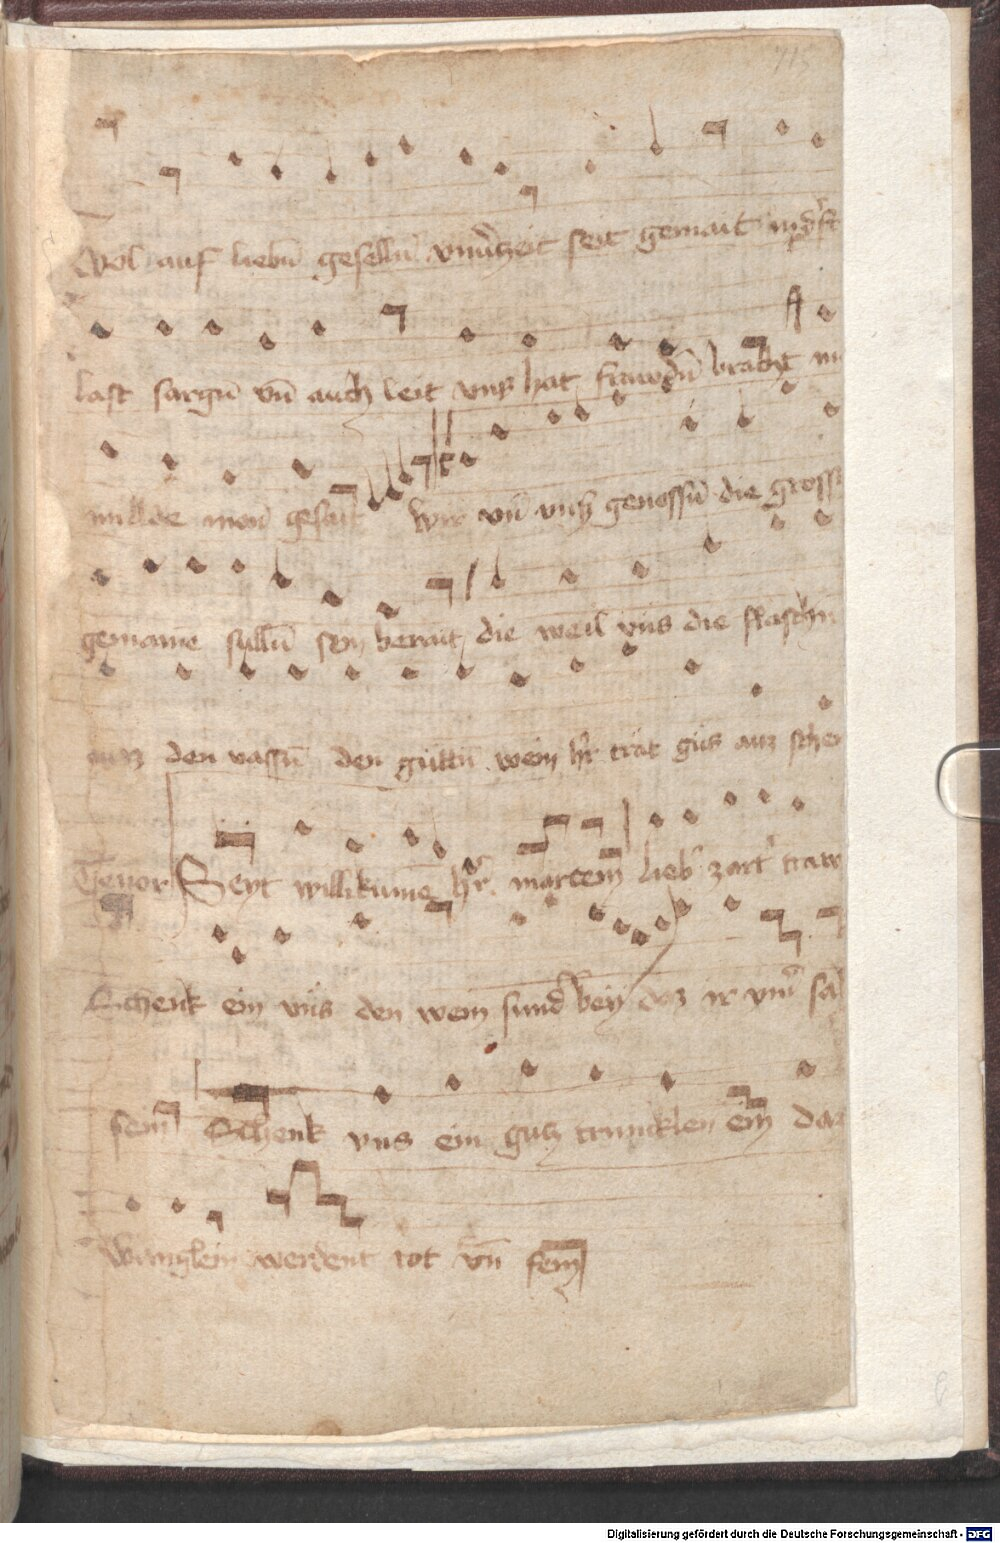 Wol auf liebñ geselln̄ seit gemait
last sargn̄ vn̄ auch leit vns hat frawdn̄ bracht
milde mon gesait wir vn̄ vnß genossn̄ die grosse
gemaine sulln̄ sein berait die weil vns die flaschn
auz den vassn̄ den gutn̄ wein hr̄ trat gus auz schen
Tenor Seyt willikume hr̄ martein lieb zart traw
Schenk ein vns den wein sund bey daz ir
sein Schenk vns ein gutz trincklen ein daz
wanglein werdent rot vn̄ fein
Digitalisierung gefördert durch die Deutsche Forschungsgemeinschaft - DFG